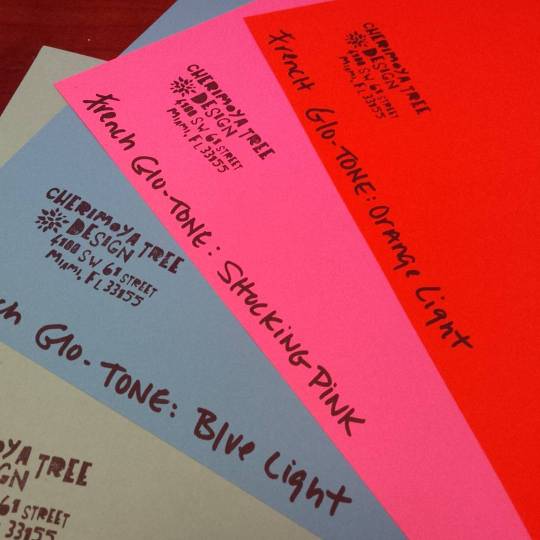 CHERIMOYA TREE
DESIGN
4100 SW 61 STREET
MIAMI, FL 33155
French Glo-TONE: Orange Light
CHERIMOYA TREE
DESIGN
4100 SW 61 STREET
MIAMI, FL 33155
French Glo-TONE: SHOCKING PINK
CHERIMOYA TREE
DESIGN
4100 SW 61 STREET
MIAMI, FL 33155
ch Glo-TONE: Blue Light
OYA TREE
GN
61 STREET
33155